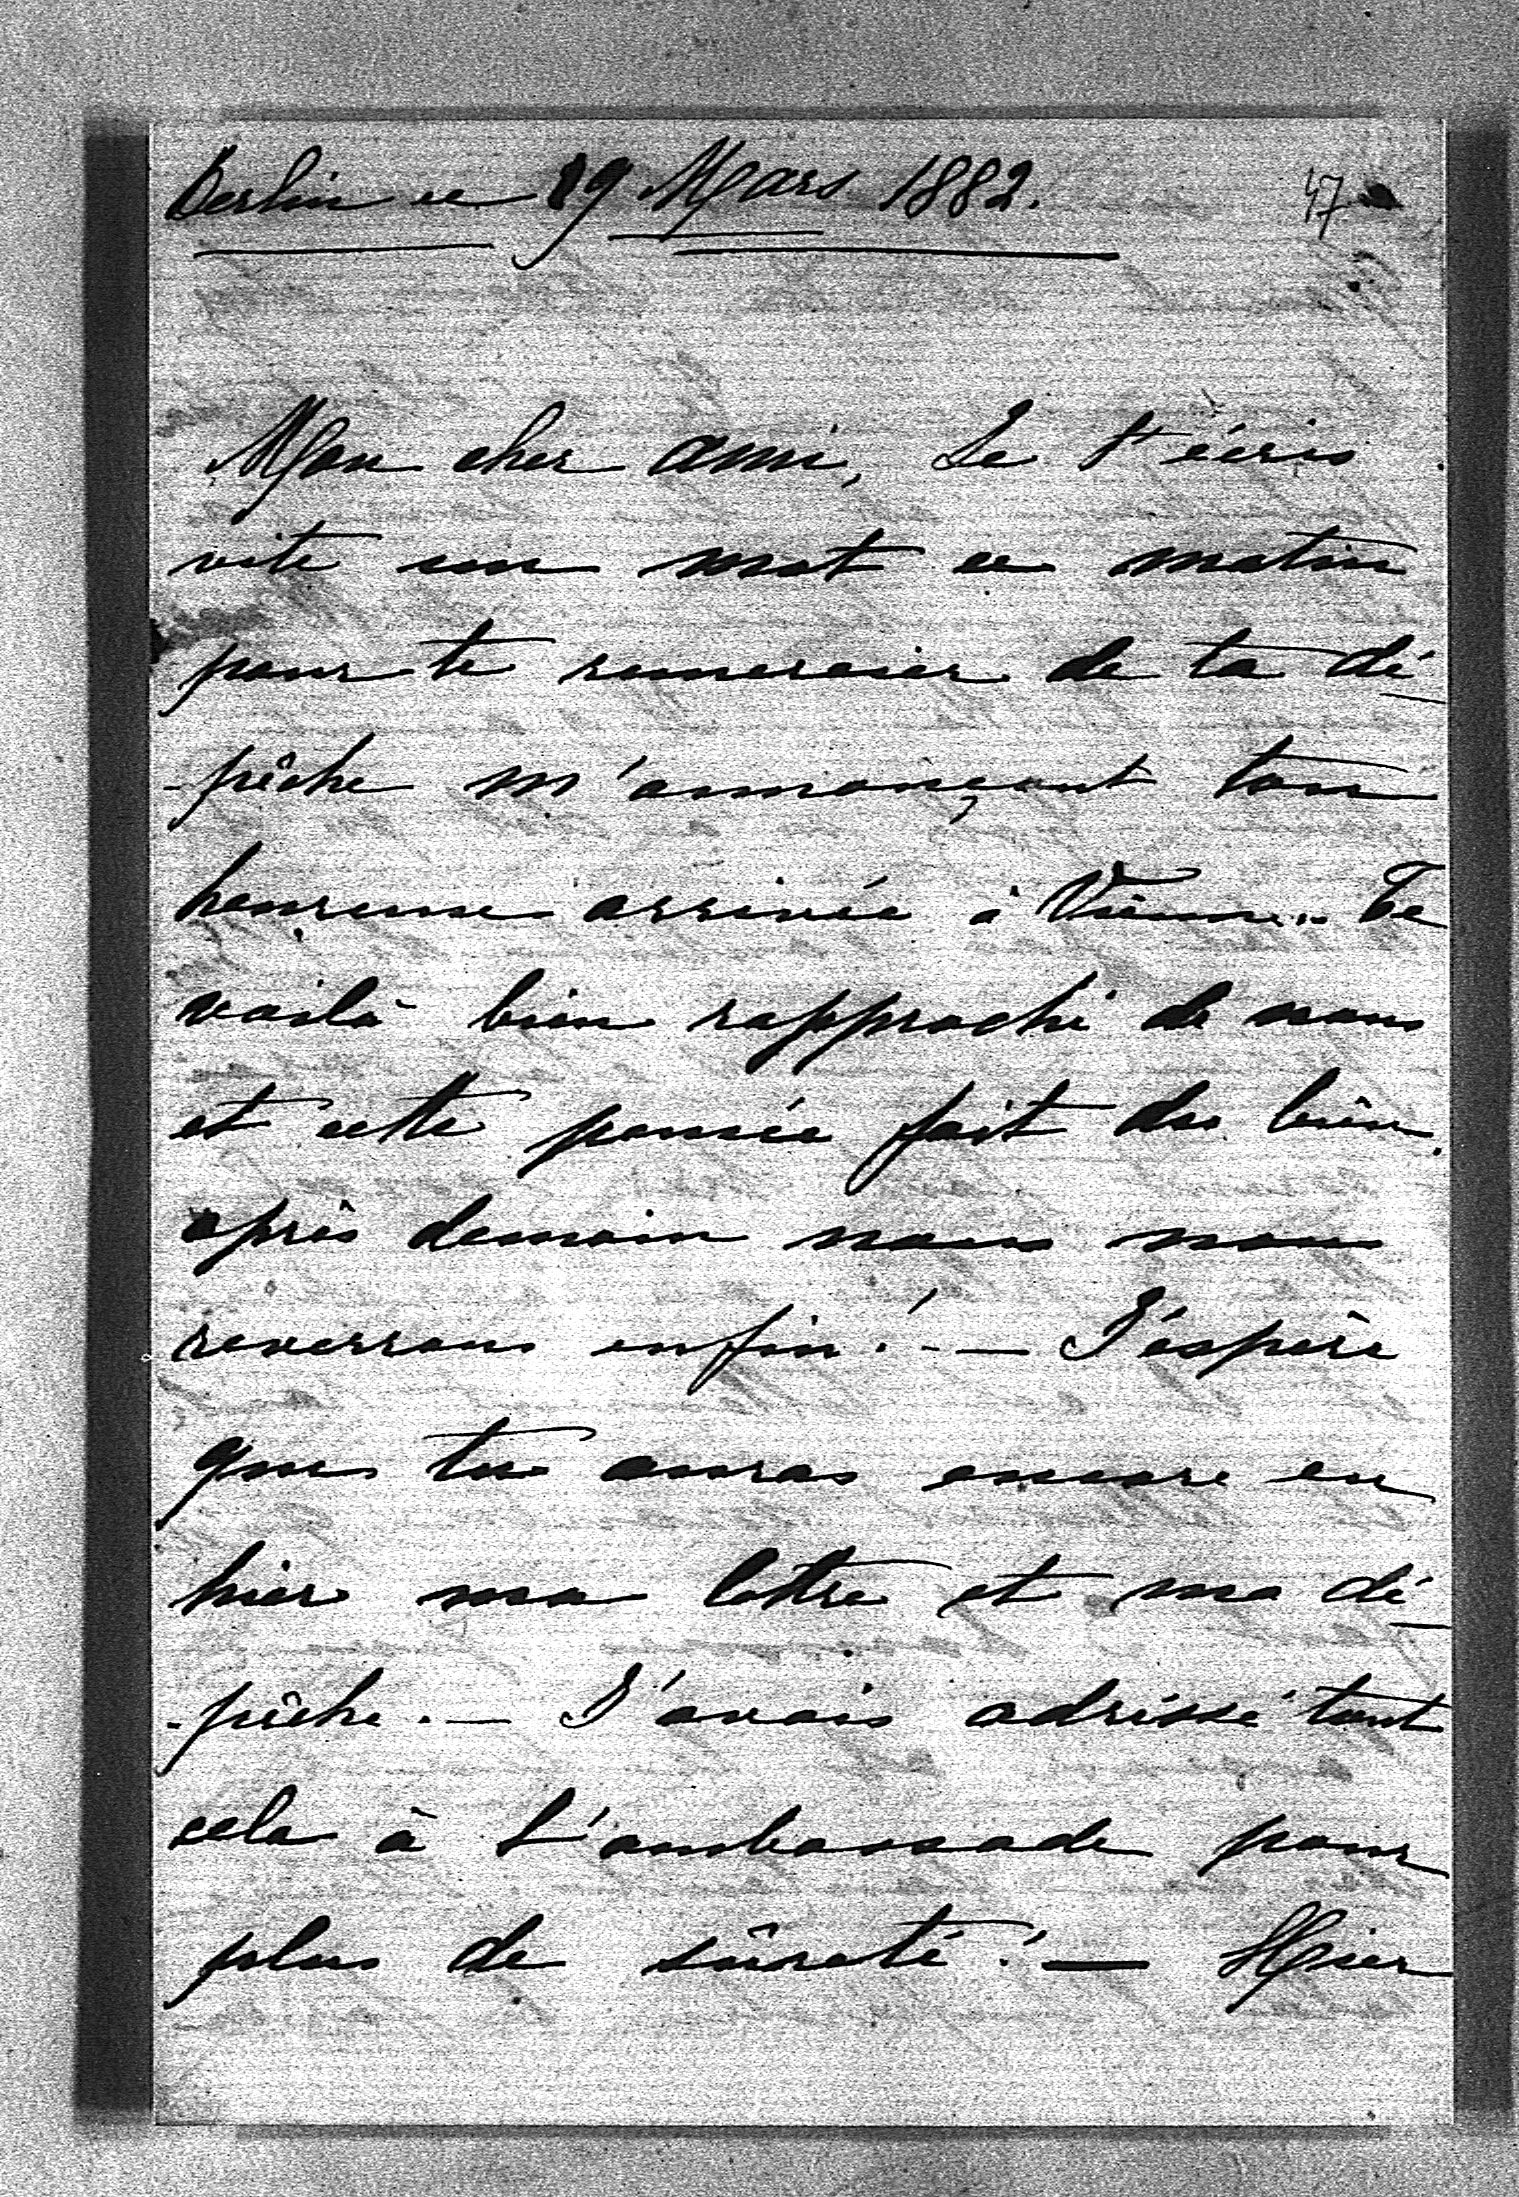 Berlin ce 29 Mars 1882.
47
Mon cher ami, Je t'écris
vite un mot ce matin
pour te remercier de ta dé-
-pêche m'annonçant ton
heureuse arrivée à Vienne.. Te
voilà bien rapproché de nous
et cette pensée fait du bien.
après demain nous nous
reverrons enfin! — J'espère
que tu auras encore eu
hier ma lettre et ma dé-
-pêche. — J'avais adréssé tout
cela à L'ambassade pour
plus de sûreté! — Hier